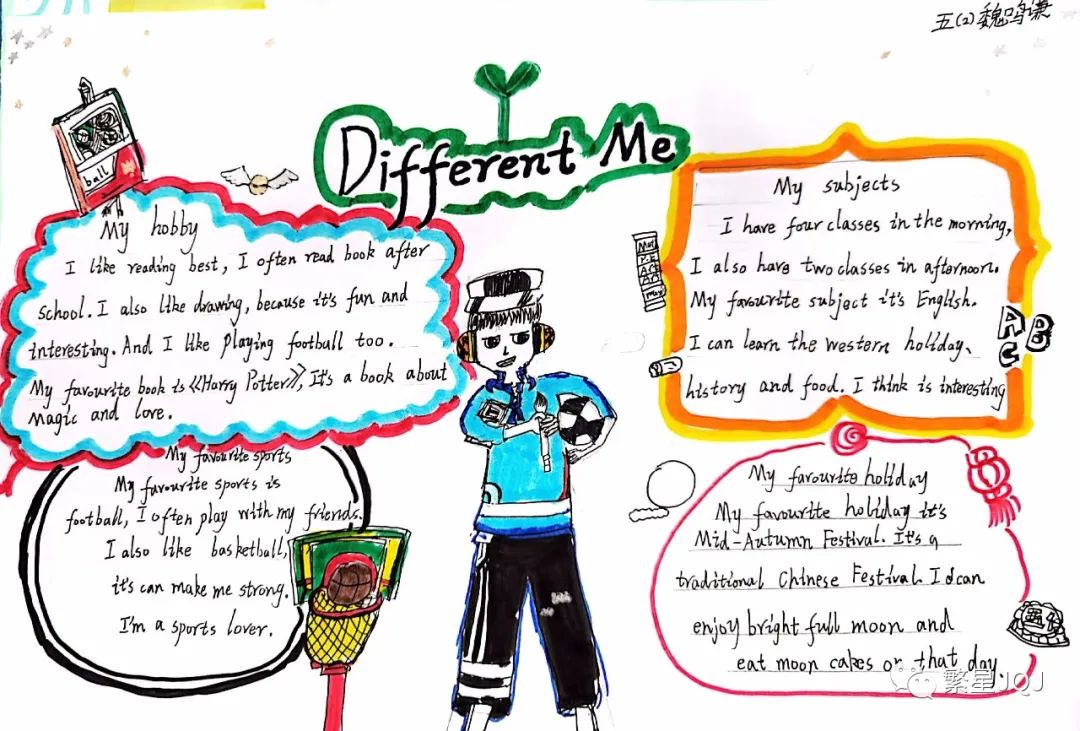 五(2)魏鸣谦
Different Me
ball
My hobby
I like reading best, I often read book after
school. I also like drawing, because it's fun and
interesting. And I like playing football too.
My favourite book is《Harry Potter》, It's a book about
magic and love.
My favourite sports
My favourite sports is
football, I often play with my friends.
I also like basketball,
it's can make me strong.
I'm a sports lover.
My subjects
I have four classes in the morning,
I also have two classes in afternoon.
My favourite subject it's English.
I can learn the western holiday、
history and food. I think is interesting
A B
C
My favourite holiday
My favourite holiday it's
Mid-Autumn Festival. It's a
traditional Chinese Festival. I can
enjoy bright full moon and
eat moon cakes on that day.
五仁
繁星JQJ